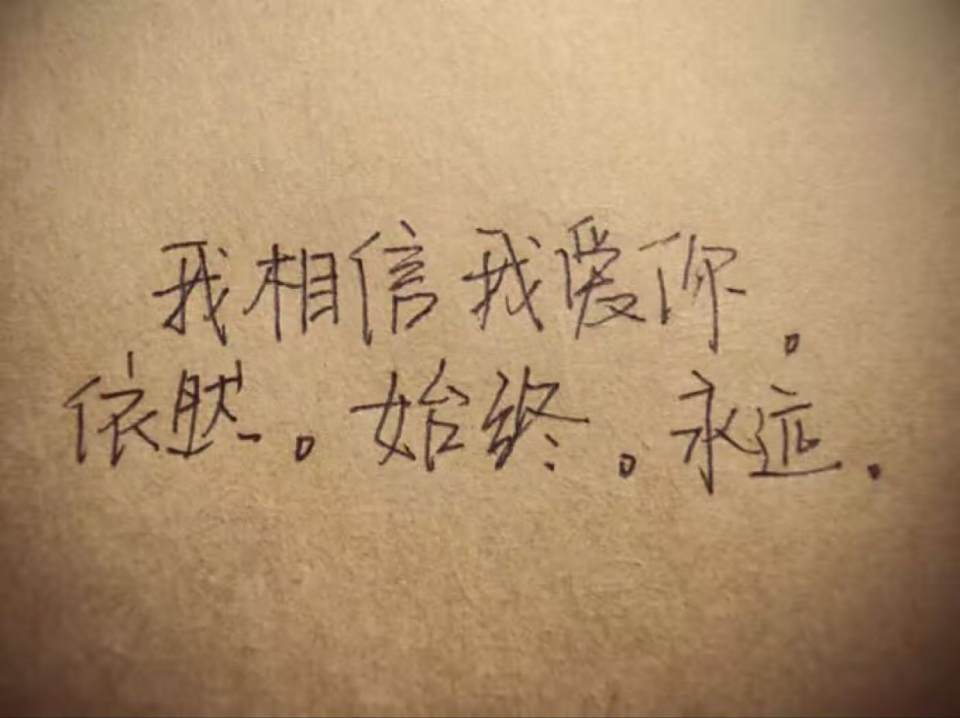 我相信我爱你。
依然。始终。永远。